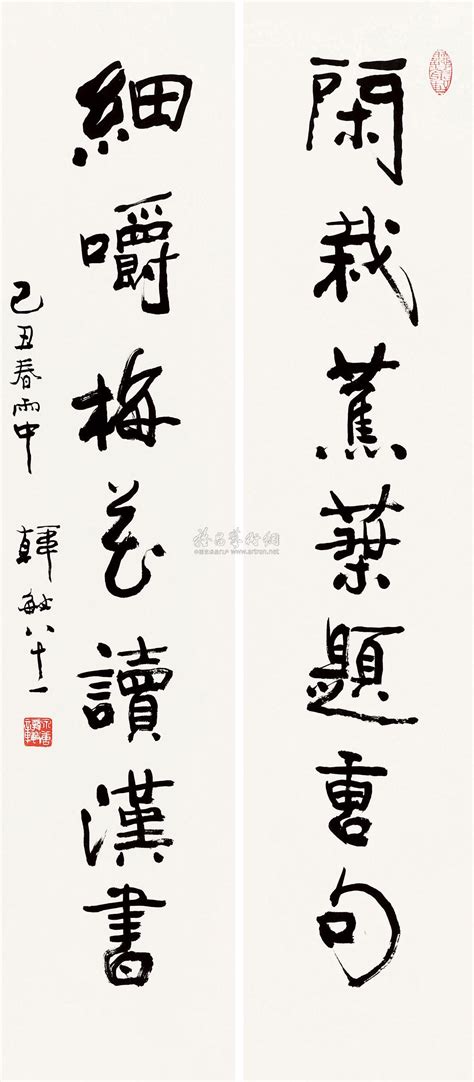 閑栽蕉葉題唐句
細嚼梅花讀漢書
己丑春雨中 韓敏八十一
雅昌藝術網
www.artron.net